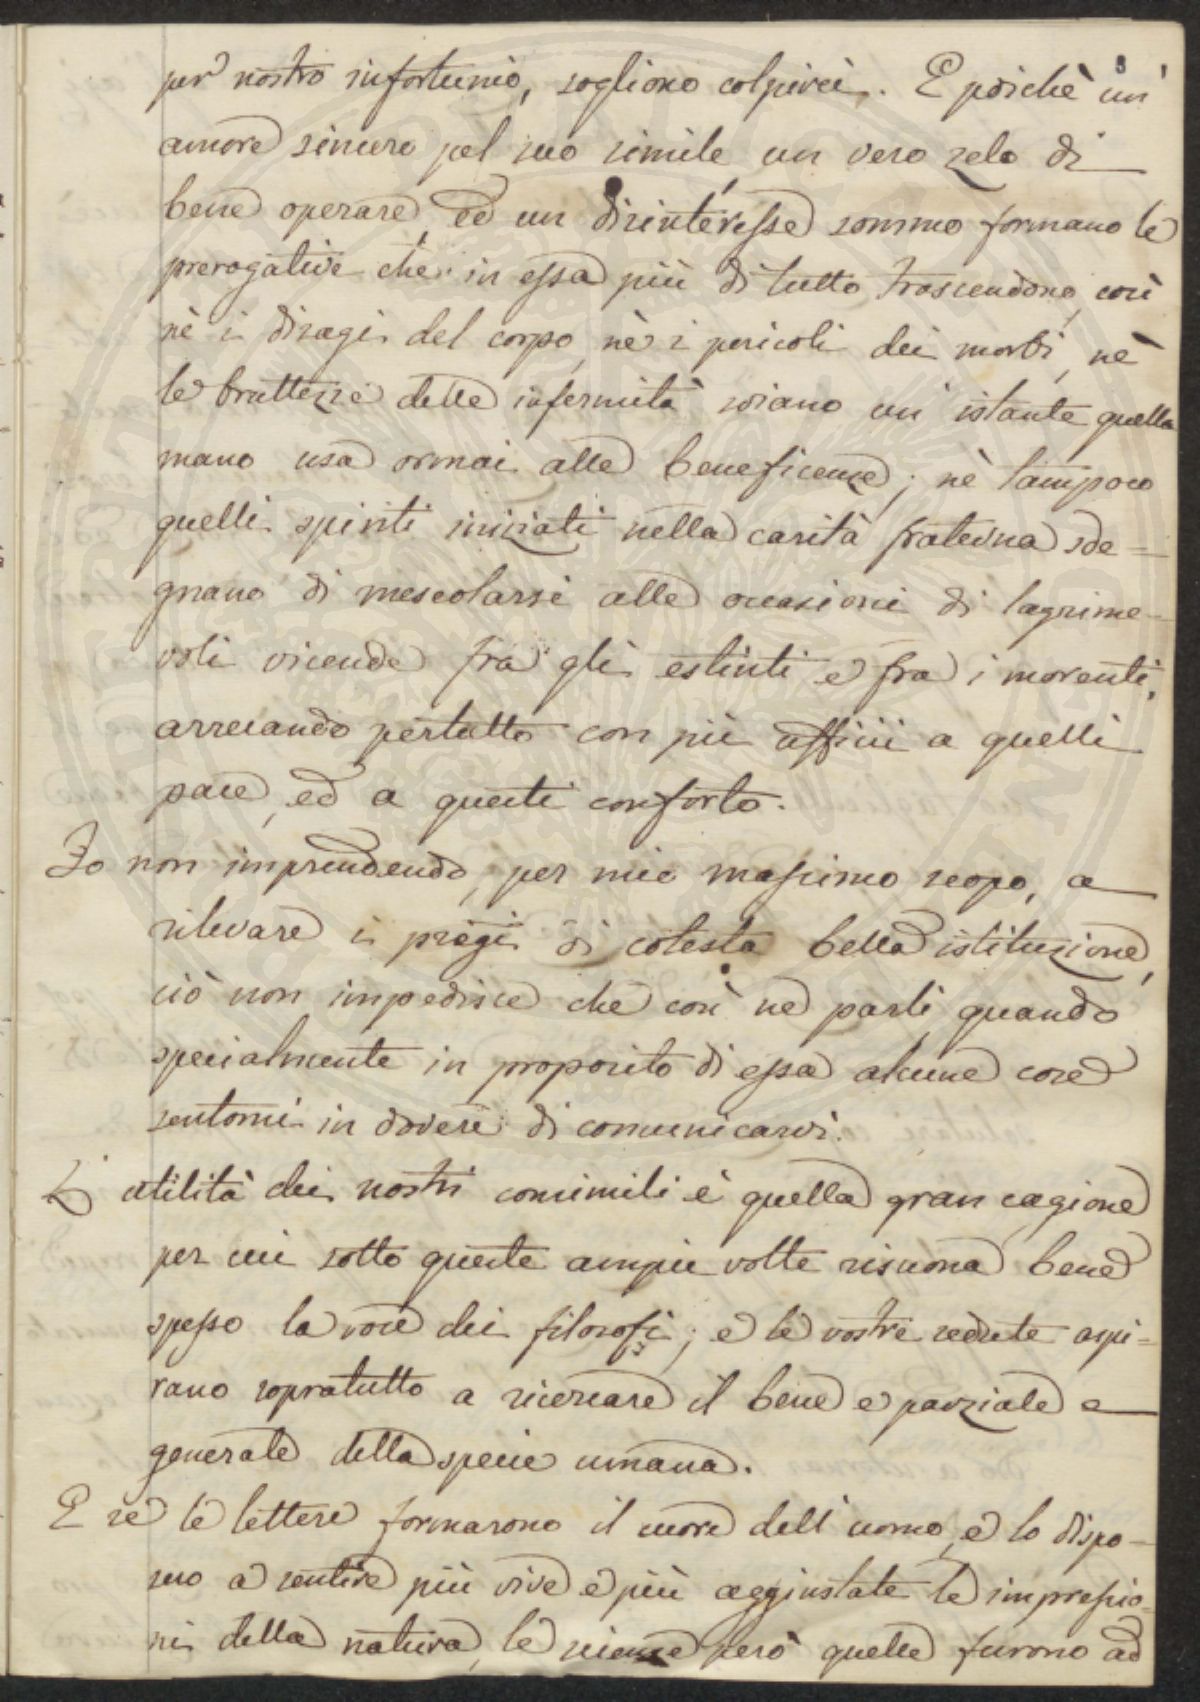 per nostro infortunio, sogliono colpirci. E poichè un'
amore sincero pel suo simile, un vero zelo di
bene operare, ed un disinteresse sommo formano le
prerogative che in essa più di tutto trascendono, così
nè i disagi del corpo, nè i pericoli dei morbi, nè
le bruttezze delle infermità sviano un' istante quella
mano usa ormai alle beneficenze; nè tampoco
quelli spiriti iniziati nella carità fraterna sde=
gnano di mescolarsi alle occasioni di lagrime-
voli vicende fra gli estinti e fra i morenti,
arrecando pertutto con pii ufficii a quelli
pace, ed a questi conforto.
Io non imprendendo, per mio massimo scopo, a
rilevare i pregi di cotesta bella istituzione,
ciò non impedisce che così ne parli quando
specialmente in proposito di essa alcune cose
sentomi in dovere di comunicarvi.
L' utilità dei nostri consimili è quella gran cagione
per cui sotto queste ampie volte risuona bene
spesso la voce dei filosofi; e le vostre sedute aspi-
rano sopratutto a ricercare il bene e parziale e
generale della specie umana.
E se le lettere formarono il cuore dell' uomo, e lo dispo-
sero a sentire più vive e più aggiustate le impressio-
ni della natura, le scienze però quelle furono ad